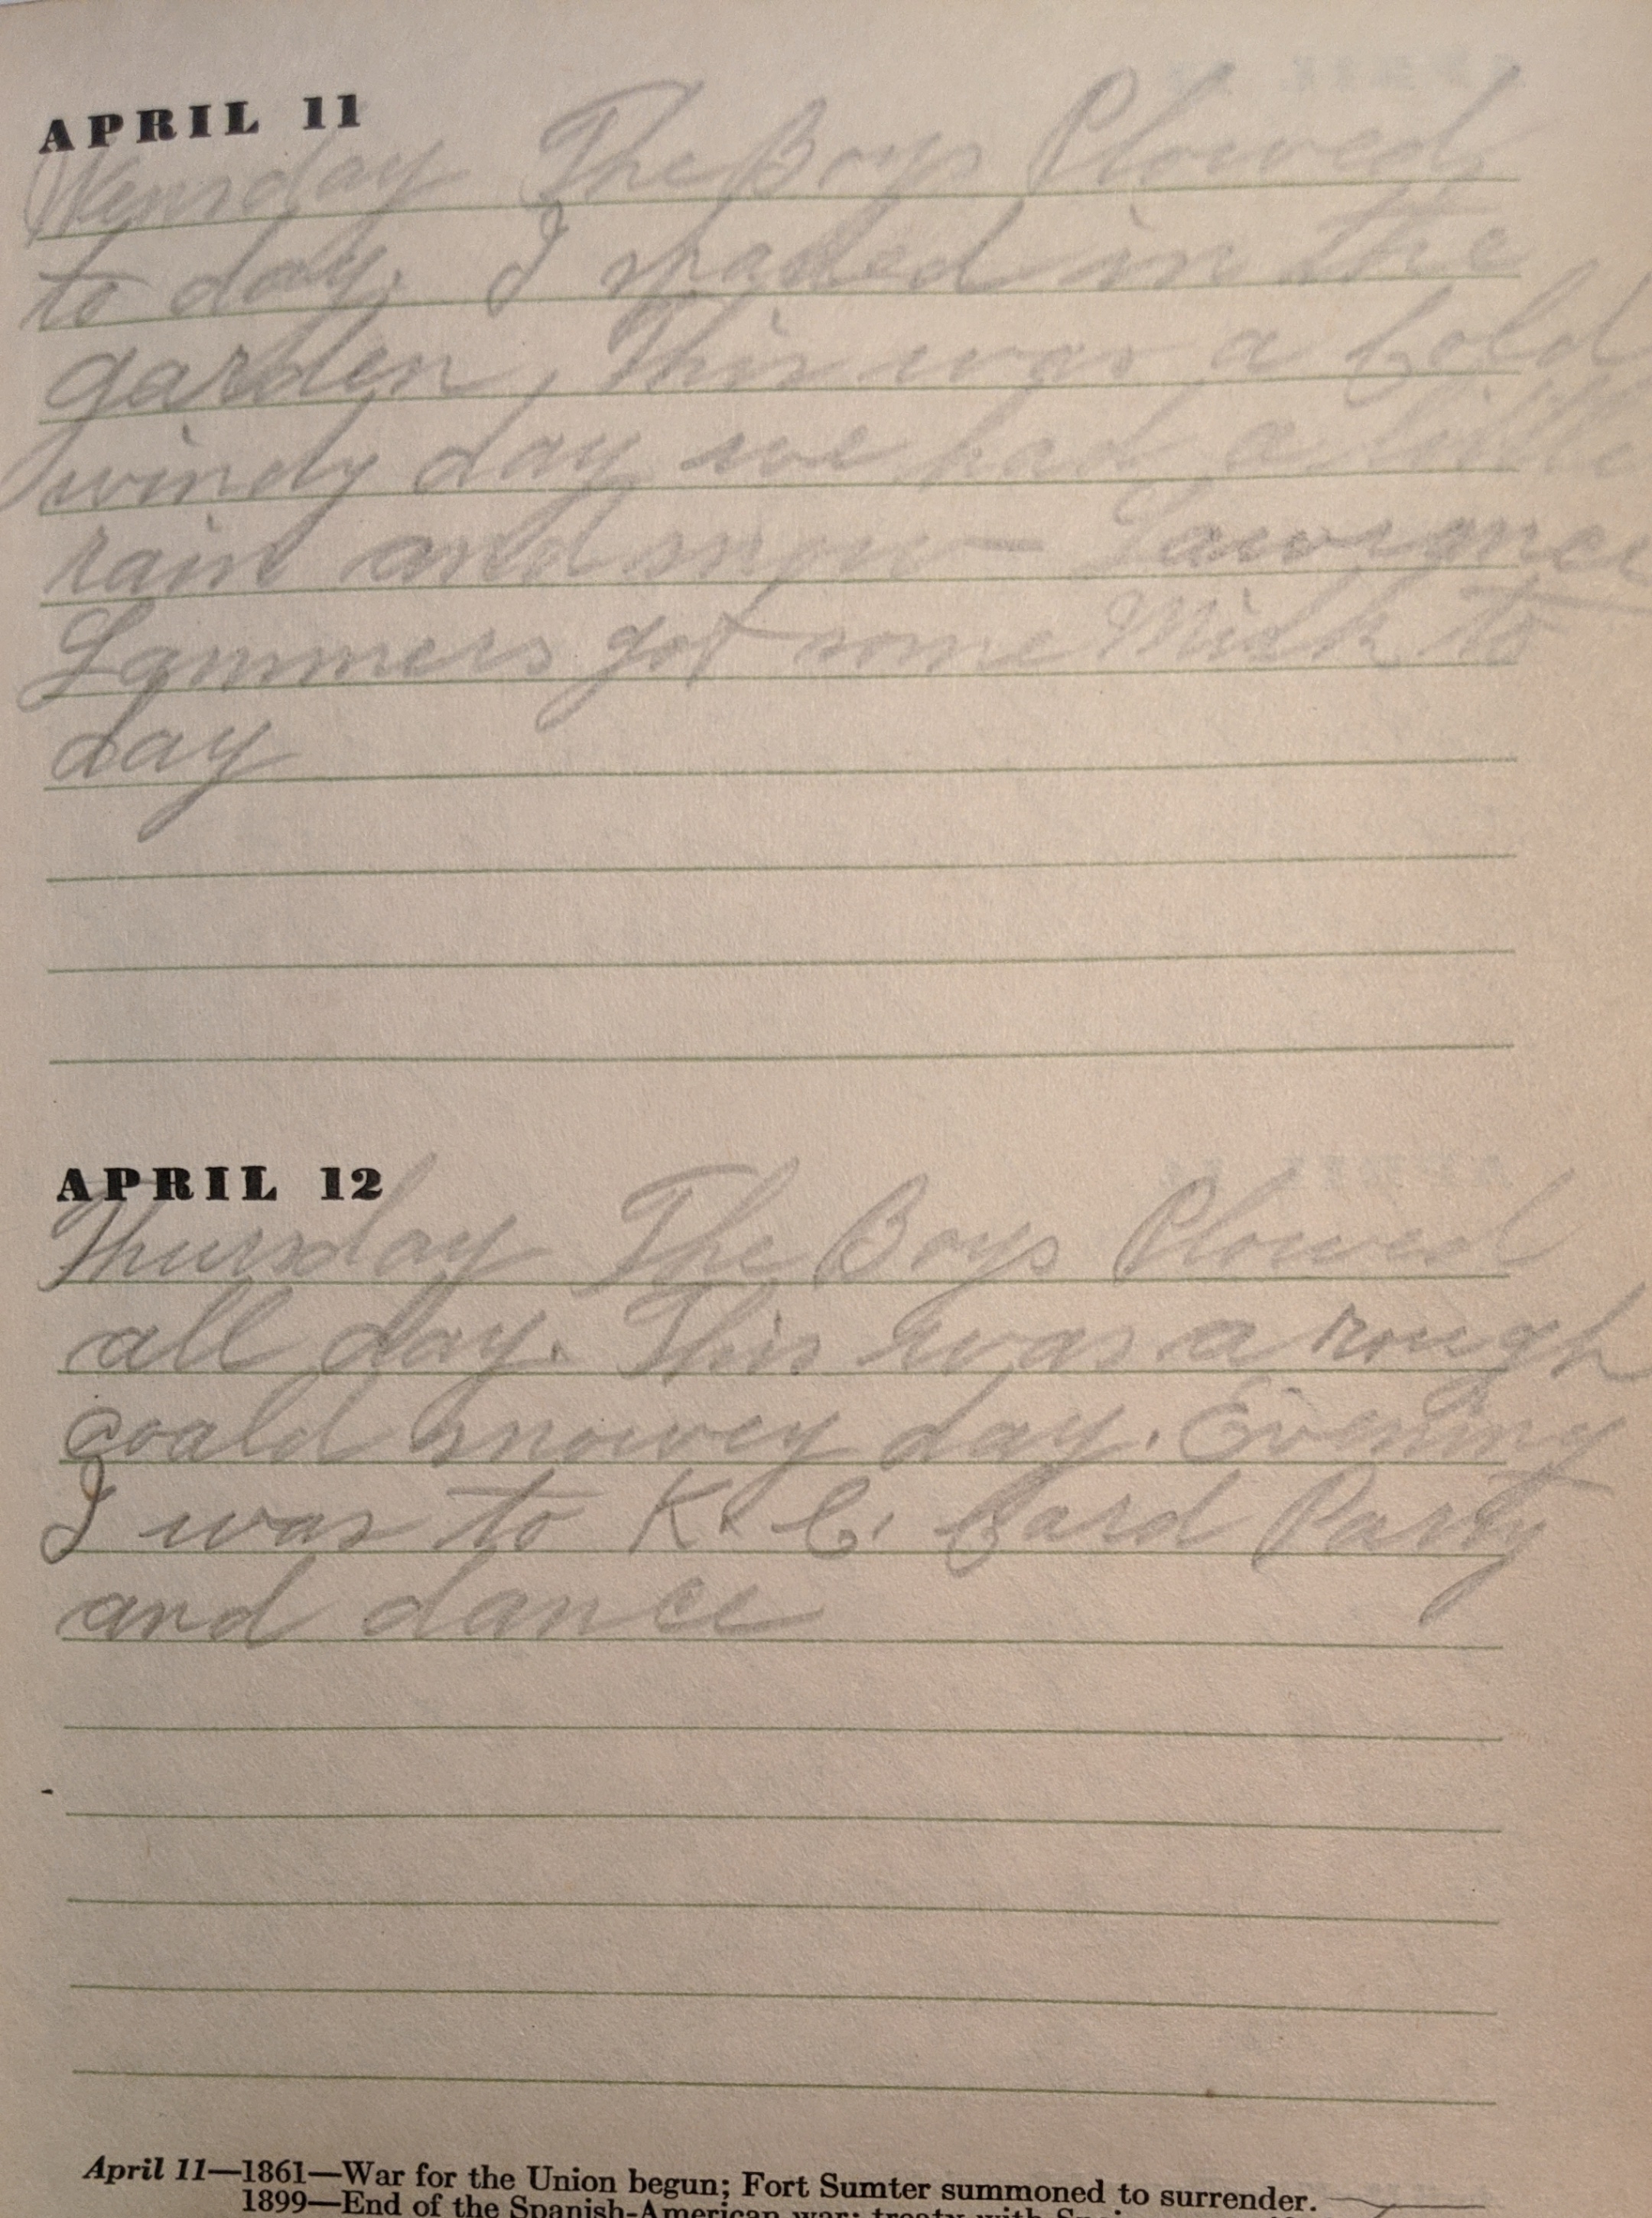 APRIL 11
Wensday The Boys Plowed
to day. I spaded in the
garden, This was a Cold
windy day we had a little
rain and snow - Lawrance
Lammers got some Milk to
day
APRIL 12
Thursday The Boys Plowed
all day. This was a rough
coald snowey day. Evening
I was to K. C. Card Party
and dance
April 11—1861—War for the Union begun; Fort Sumter summoned to surrender.
1899—End of the Spanish-American war; treaty with